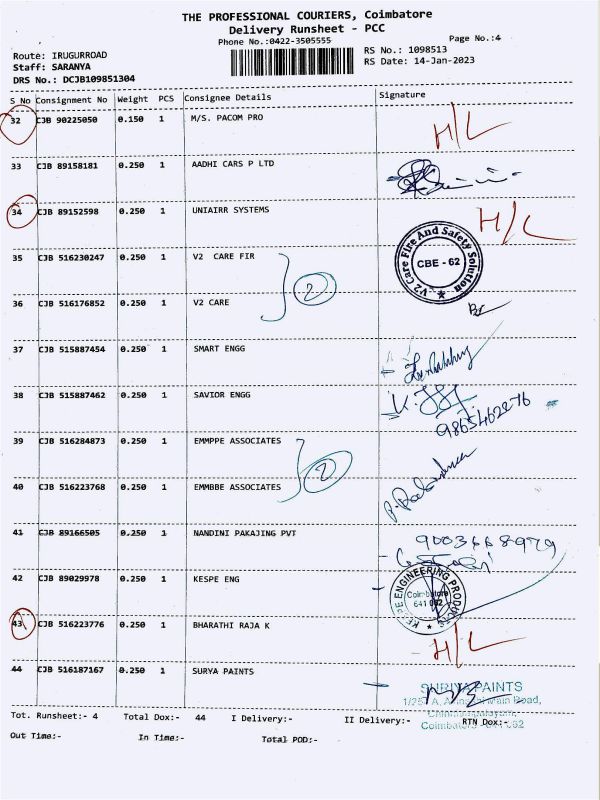 THE PROFESSIONAL COURIERS, Coimbatore
Delivery Runsheet - PCC
Phone No.:0422-3505555
Page No.:4
Route: IRUGURROAD
RS No.: 1098513
Staff: SARANYA
RS Date: 14-Jan-2023
DRS No.: DCJB109851304
S No Consignment No Weight PCS Consignee Details Signature
32 CJB 90225050 0.150 1 M/S. PACOM PRO H/L
33 CJB 89158181 0.250 1 AADHI CARS P LTD
34 CJB 89152598 0.250 1 UNIAIRR SYSTEMS H/L
35 CJB 516230247 0.250 1 V2 CARE FIR
V2 Care Fire And Safety Solution
CBE - 62
2
36 CJB 516176852 0.250 1 V2 CARE
37 CJB 515887454 0.250 1 SMART ENGG
38 CJB 515887462 0.250 1 SAVIOR ENGG
9865462276
39 CJB 516284873 0.250 1 EMMPPE ASSOCIATES
2
40 CJB 516223768 0.250 1 EMMBBE ASSOCIATES
41 CJB 89166505 0.250 1 NANDINI PAKAJING PVT 9003668979
42 CJB 89029978 0.250 1 KESPE ENG
ENGINEERING PRODUCTS
Coimbatore
641 062
43 CJB 516223776 0.250 1 BHARATHI RAJA K H/L
44 CJB 516187167 0.250 1 SURYA PAINTS
SURIYA PAINTS
Road,
Coimbatore - 641 062
Tot. Runsheet:- 4 Total Dox:- 44 I Delivery:- II Delivery:- RTN Dox:-
Out Time:- In Time:- Total POD:-